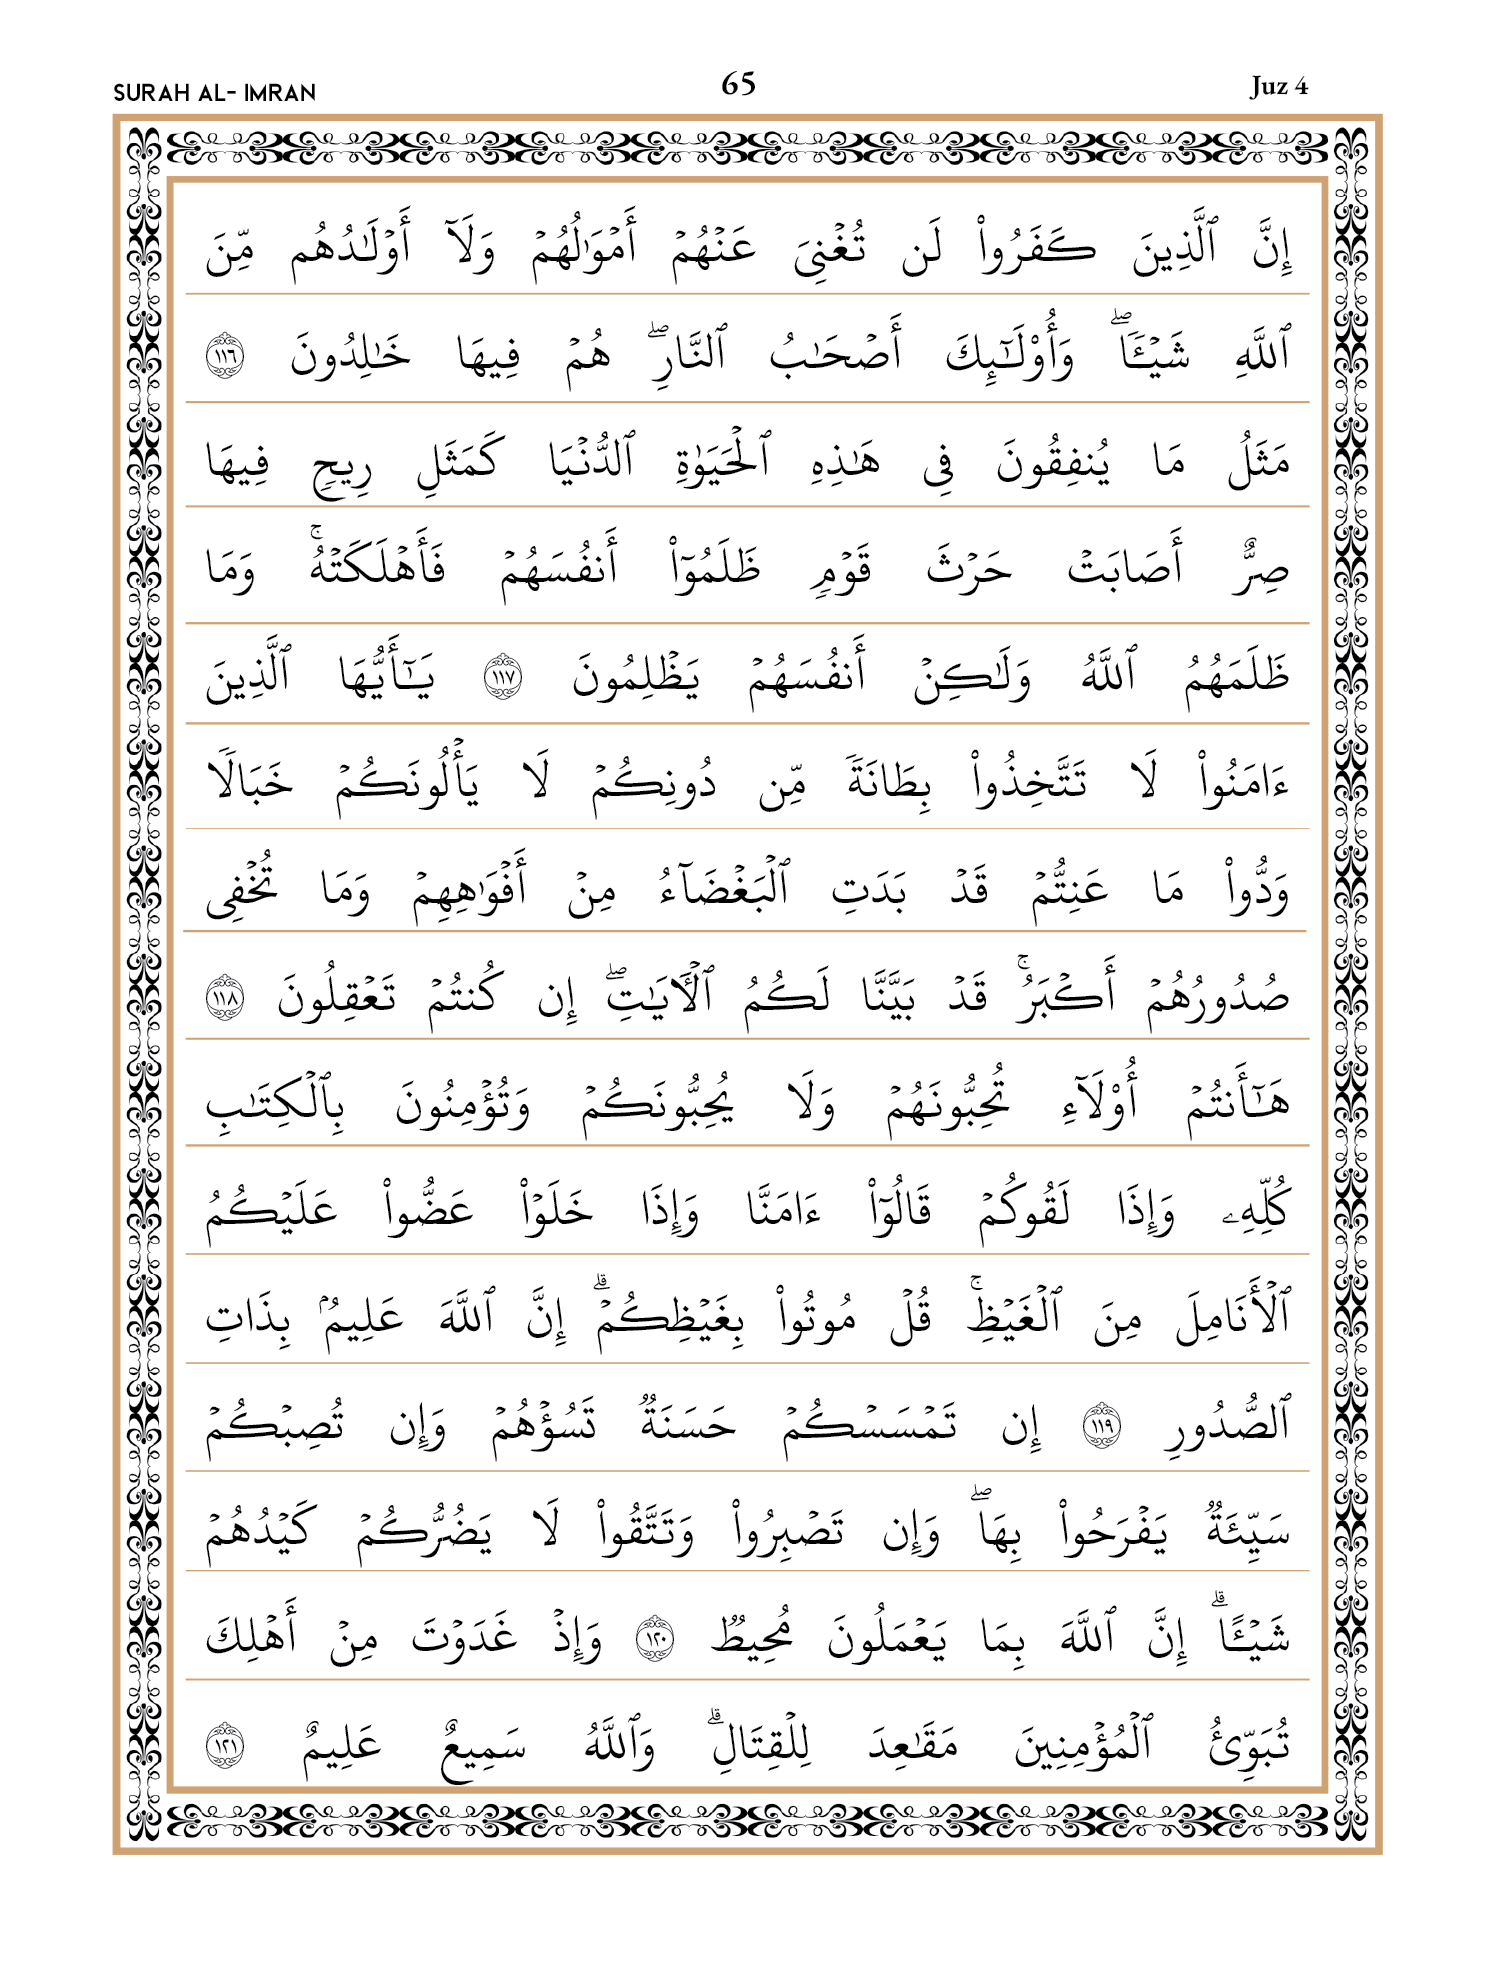 SURAH AL- IMRAN
65
Juz 4
إِنَّ ٱلَّذِينَ كَفَرُوا۟ لَن تُغْنِىَ عَنْهُمْ أَمْوَٰلُهُمْ وَلَآ أَوْلَـٰدُهُم مِّنَ
ٱللَّهِ شَيْـًٔا ۖ وَأُو۟لَـٰٓئِكَ أَصْحَـٰبُ ٱلنَّارِ ۖ هُمْ فِيهَا خَـٰلِدُونَ ١١٦
مَثَلُ مَا يُنفِقُونَ فِى هَـٰذِهِ ٱلْحَيَوٰةِ ٱلدُّنْيَا كَمَثَلِ رِيحٍ فِيهَا
صِرٌّ أَصَابَتْ حَرْثَ قَوْمٍ ظَلَمُوٓا۟ أَنفُسَهُمْ فَأَهْلَكَتْهُ ۚ وَمَا
ظَلَمَهُمُ ٱللَّهُ وَلَـٰكِنْ أَنفُسَهُمْ يَظْلِمُونَ ١١٧ يَـٰٓأَيُّهَا ٱلَّذِينَ
ءَامَنُوا۟ لَا تَتَّخِذُوا۟ بِطَانَةً مِّن دُونِكُمْ لَا يَأْلُونَكُمْ خَبَالًا
وَدُّوا۟ مَا عَنِتُّمْ قَدْ بَدَتِ ٱلْبَغْضَآءُ مِنْ أَفْوَٰهِهِمْ وَمَا تُخْفِى
صُدُورُهُمْ أَكْبَرُ ۚ قَدْ بَيَّنَّا لَكُمُ ٱلْـَٔايَـٰتِ ۖ إِن كُنتُمْ تَعْقِلُونَ ١١٨
هَـٰٓأَنتُمْ أُو۟لَآءِ تُحِبُّونَهُمْ وَلَا يُحِبُّونَكُمْ وَتُؤْمِنُونَ بِٱلْكِتَـٰبِ
كُلِّهِۦ وَإِذَا لَقُوكُمْ قَالُوٓا۟ ءَامَنَّا وَإِذَا خَلَوْا۟ عَضُّوا۟ عَلَيْكُمُ
ٱلْأَنَامِلَ مِنَ ٱلْغَيْظِ ۚ قُلْ مُوتُوا۟ بِغَيْظِكُمْ ۗ إِنَّ ٱللَّهَ عَلِيمٌۢ بِذَاتِ
ٱلصُّدُورِ ١١٩ إِن تَمْسَسْكُمْ حَسَنَةٌ تَسُؤْهُمْ وَإِن تُصِبْكُمْ
سَيِّئَةٌ يَفْرَحُوا۟ بِهَا ۖ وَإِن تَصْبِرُوا۟ وَتَتَّقُوا۟ لَا يَضُرُّكُمْ كَيْدُهُمْ
شَيْـًٔا ۗ إِنَّ ٱللَّهَ بِمَا يَعْمَلُونَ مُحِيطٌ ١٢٠ وَإِذْ غَدَوْتَ مِنْ أَهْلِكَ
تُبَوِّئُ ٱلْمُؤْمِنِينَ مَقَـٰعِدَ لِلْقِتَالِ ۗ وَٱللَّهُ سَمِيعٌ عَلِيمٌ ١٢١